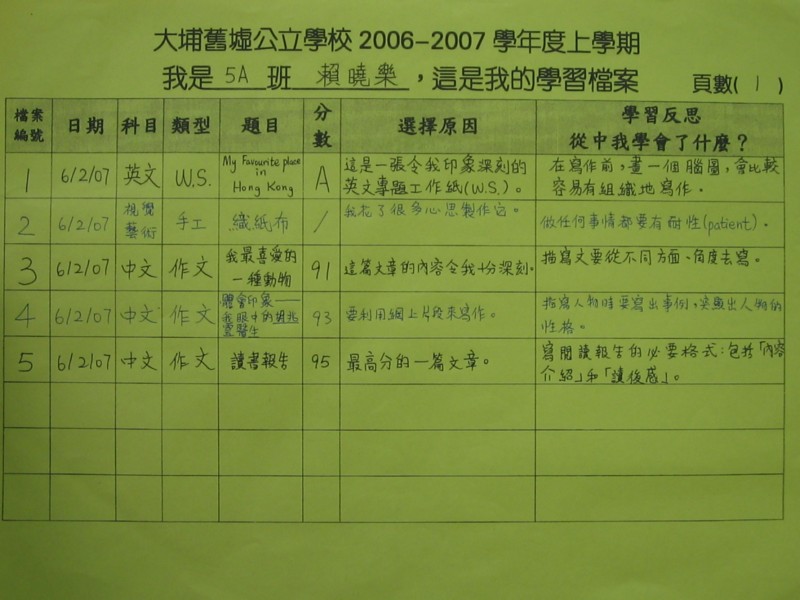 大埔舊墟公立學校 2006-2007 學年度上學期
我是 5A 班 賴曉樂，這是我的學習檔案 頁數( 1 )
檔案編號 日期 科目 類型 題目 分數 選擇原因 學習反思
從中我學會了什麼？
1 6/2/07 英文 W.S. My Favourite place in Hong Kong A 這是一張令我印象深刻的英文專題工作紙(W.S.)。 在寫作前，畫一個腦圖，會比較容易有組織地寫作。
2 6/2/07 視覺藝術 手工 織紙布 / 我花了很多心思製作它。 做任何事情都要有耐性(patient)。
3 6/2/07 中文 作文 我最喜愛的一種動物 91 這篇文章的內容令我十分深刻。 描寫文要從不同方面、角度去寫。
4 6/2/07 中文 作文 體會印象——我眼中的 醫生 93 要利用網上片段來寫作。 描寫人物時要寫出事例，突顯出人物的性格。
5 6/2/07 中文 作文 讀書報告 95 最高分的一篇文章。 寫閱讀報告的必要格式：包括「內容介紹」和「讀後感」。